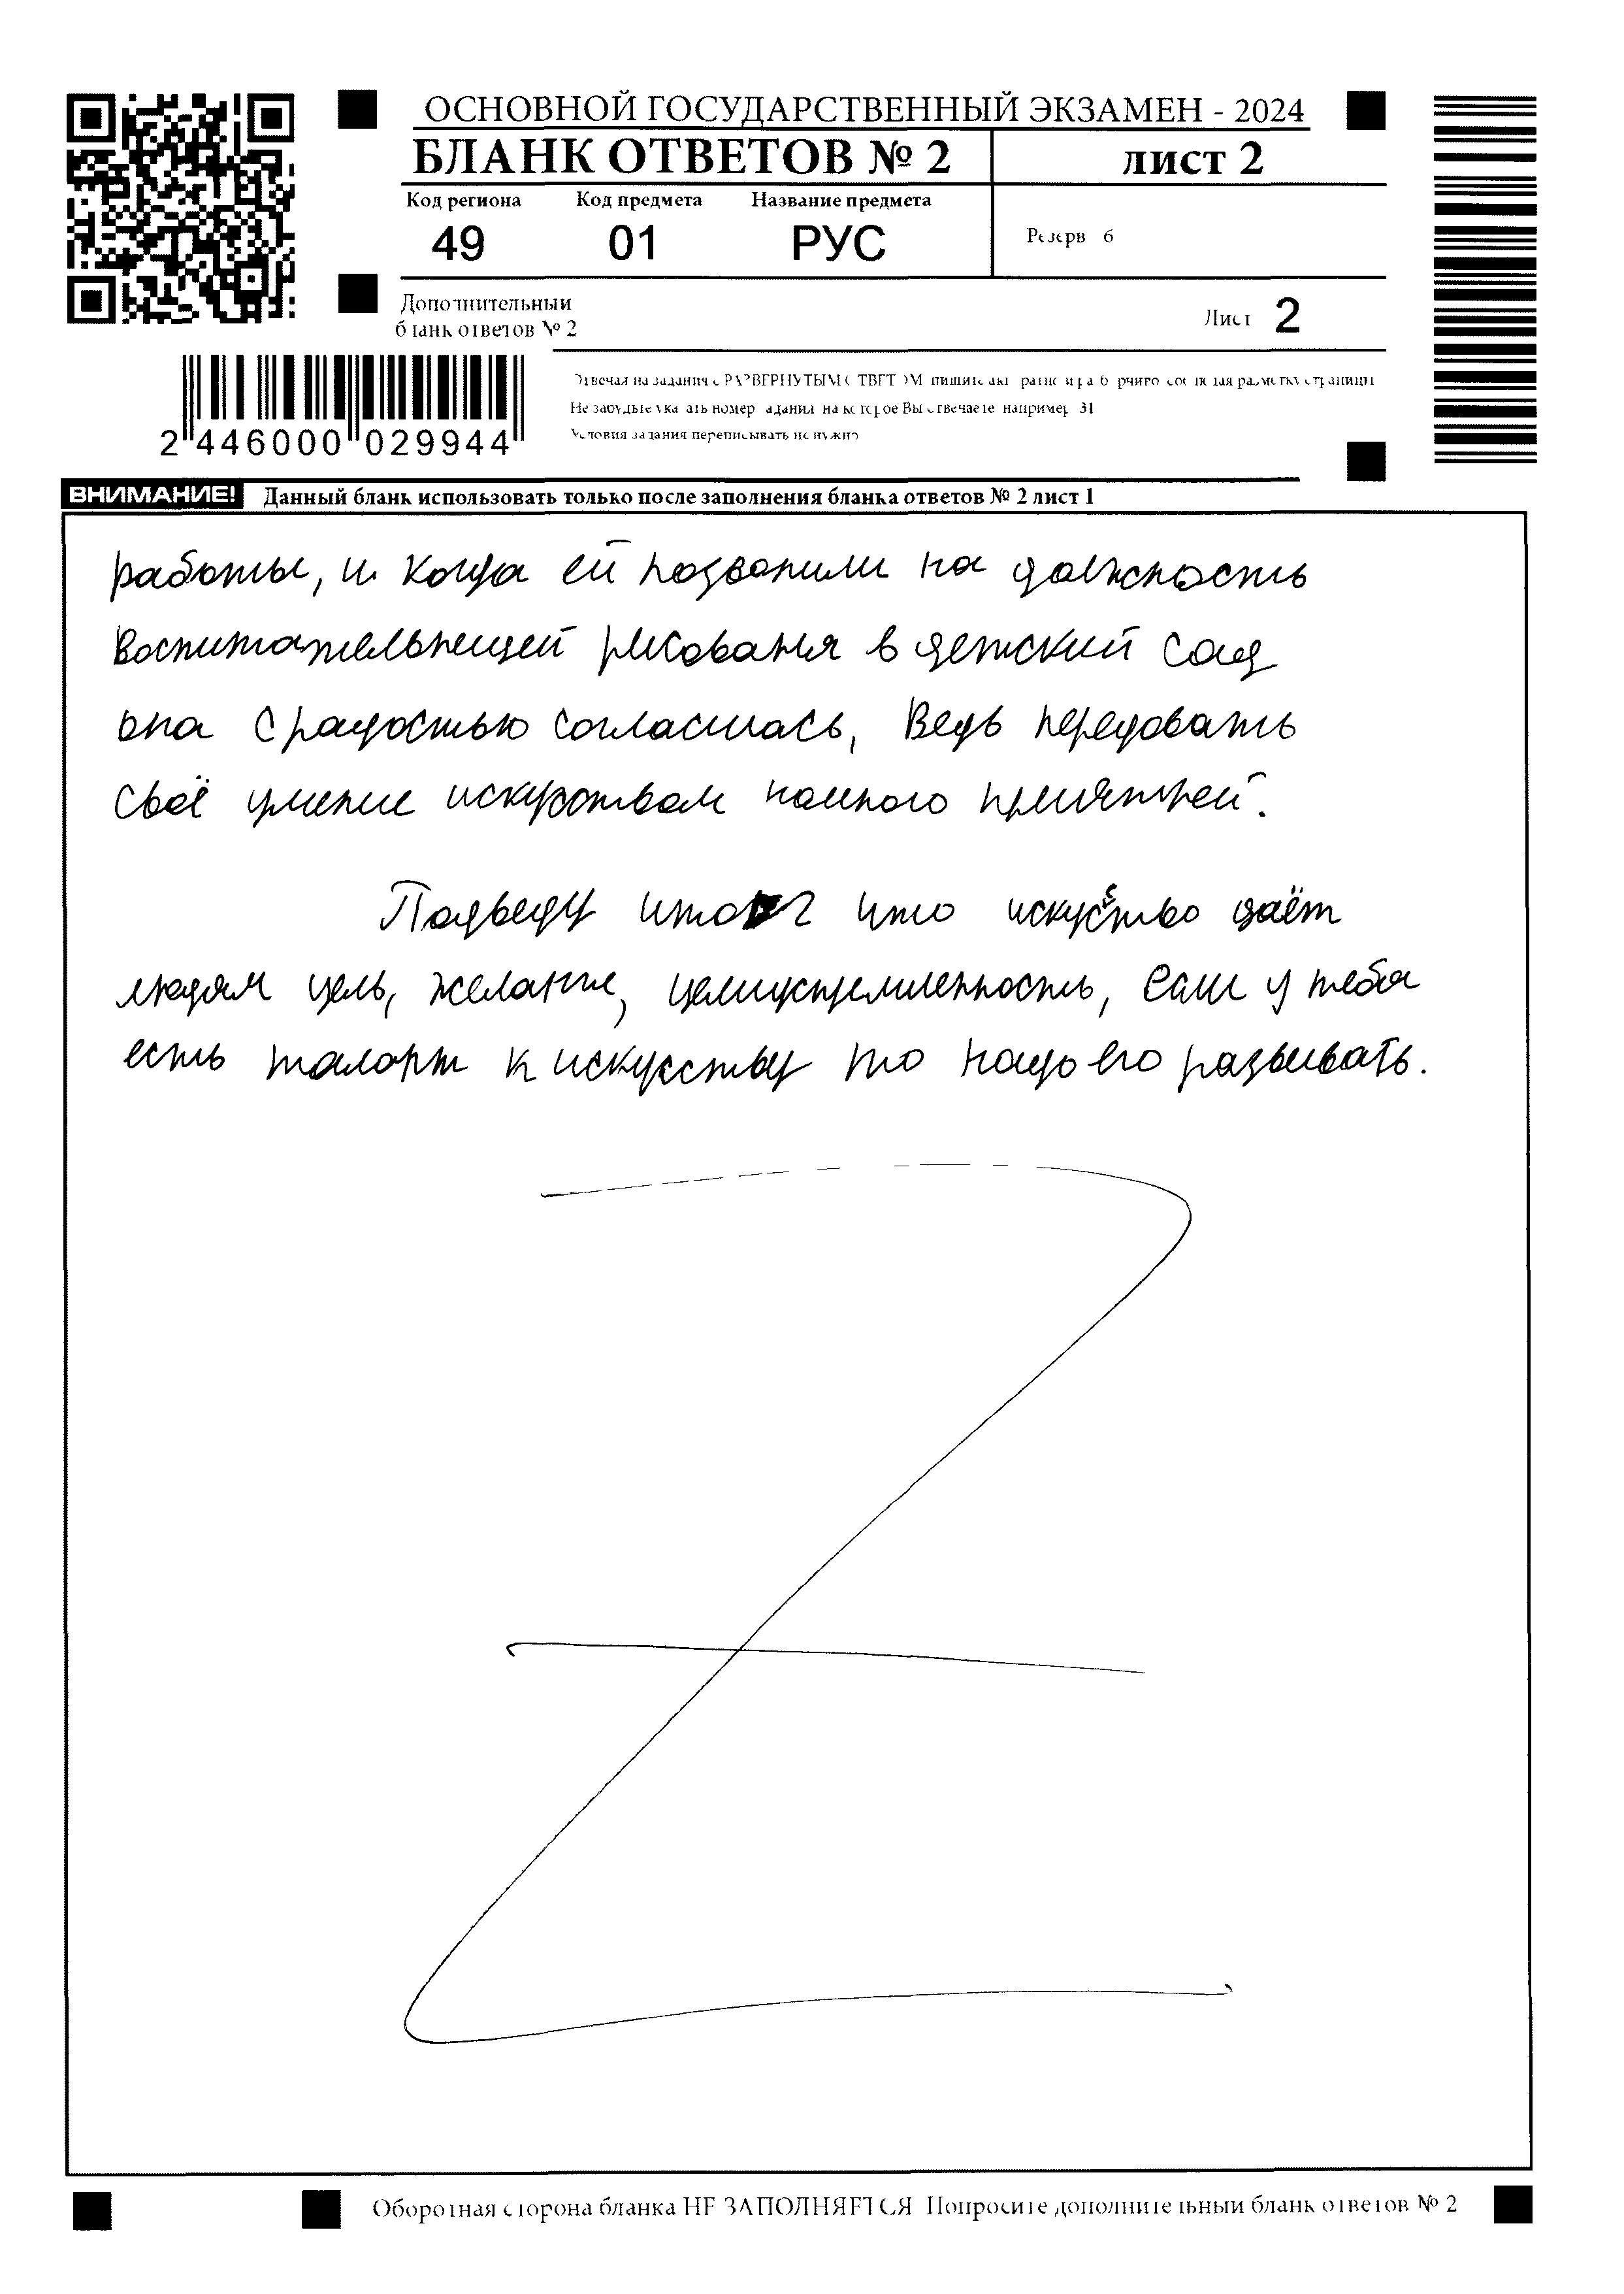 ОСНОВНОЙ ГОСУДАРСТВЕННЫЙ ЭКЗАМЕН - 2024
БЛАНК ОТВЕТОВ № 2
лист 2
Код региона Код предмета Название предмета
49 01 РУС
Резерв 6
Дополнительный
бланк ответов № 2
Лист 2
2 446000 029944
Отвечая на задания с РАЗВЕРНУТЫМ ОТВЕТОМ пишите разметку страницы
Не забудьте указать номер задания на которое Вы отвечаете например 31
Условия задания переписывать не нужно
ВНИМАНИЕ! Данный бланк использовать только после заполнения бланка ответов № 2 лист 1
работы, и когда ей позвонили на должность
воспитательнецей рисованя в детский сад
она с радостью согласилась, Ведь передовать
своё умение искусством намного приятней.
Подведу итог что искусство даёт
людям цель, желание, целиустремленность, если у тебя
есть талант к искусству то надо его развивать.
Оборотная сторона бланка НЕ ЗАПОЛНЯЕТСЯ Попросите дополнительный бланк ответов № 2